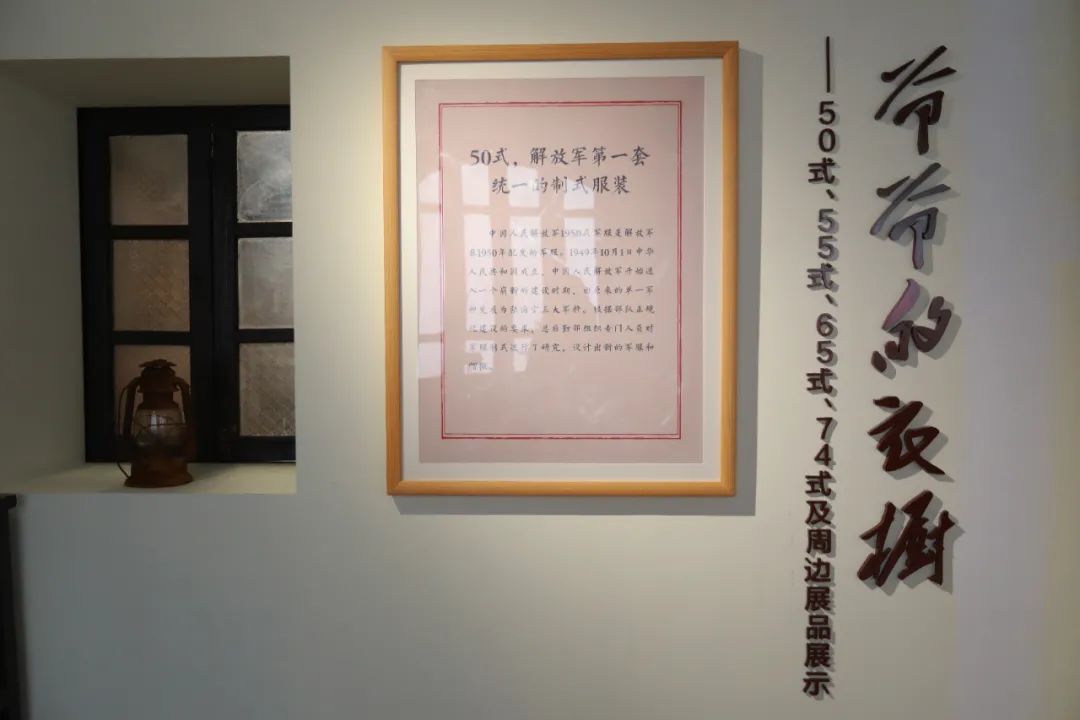 50式，解放军第一套
统一的制式服装
中国人民解放军1950式军服是解放军
自1950年配发的军服。1949年10月1日中华
人民共和国成立，中国人民解放军开始进
入一个崭新的建设时期，由原来的单一军
种发展为陆海空三大军种。根据部队正规
化建设的要求，总后勤部组织专门人员对
军服制式进行了研究，设计出新的军服和
帽徽。
爷爷的衣橱
——50式、55式、65式、74式及周边展品展示